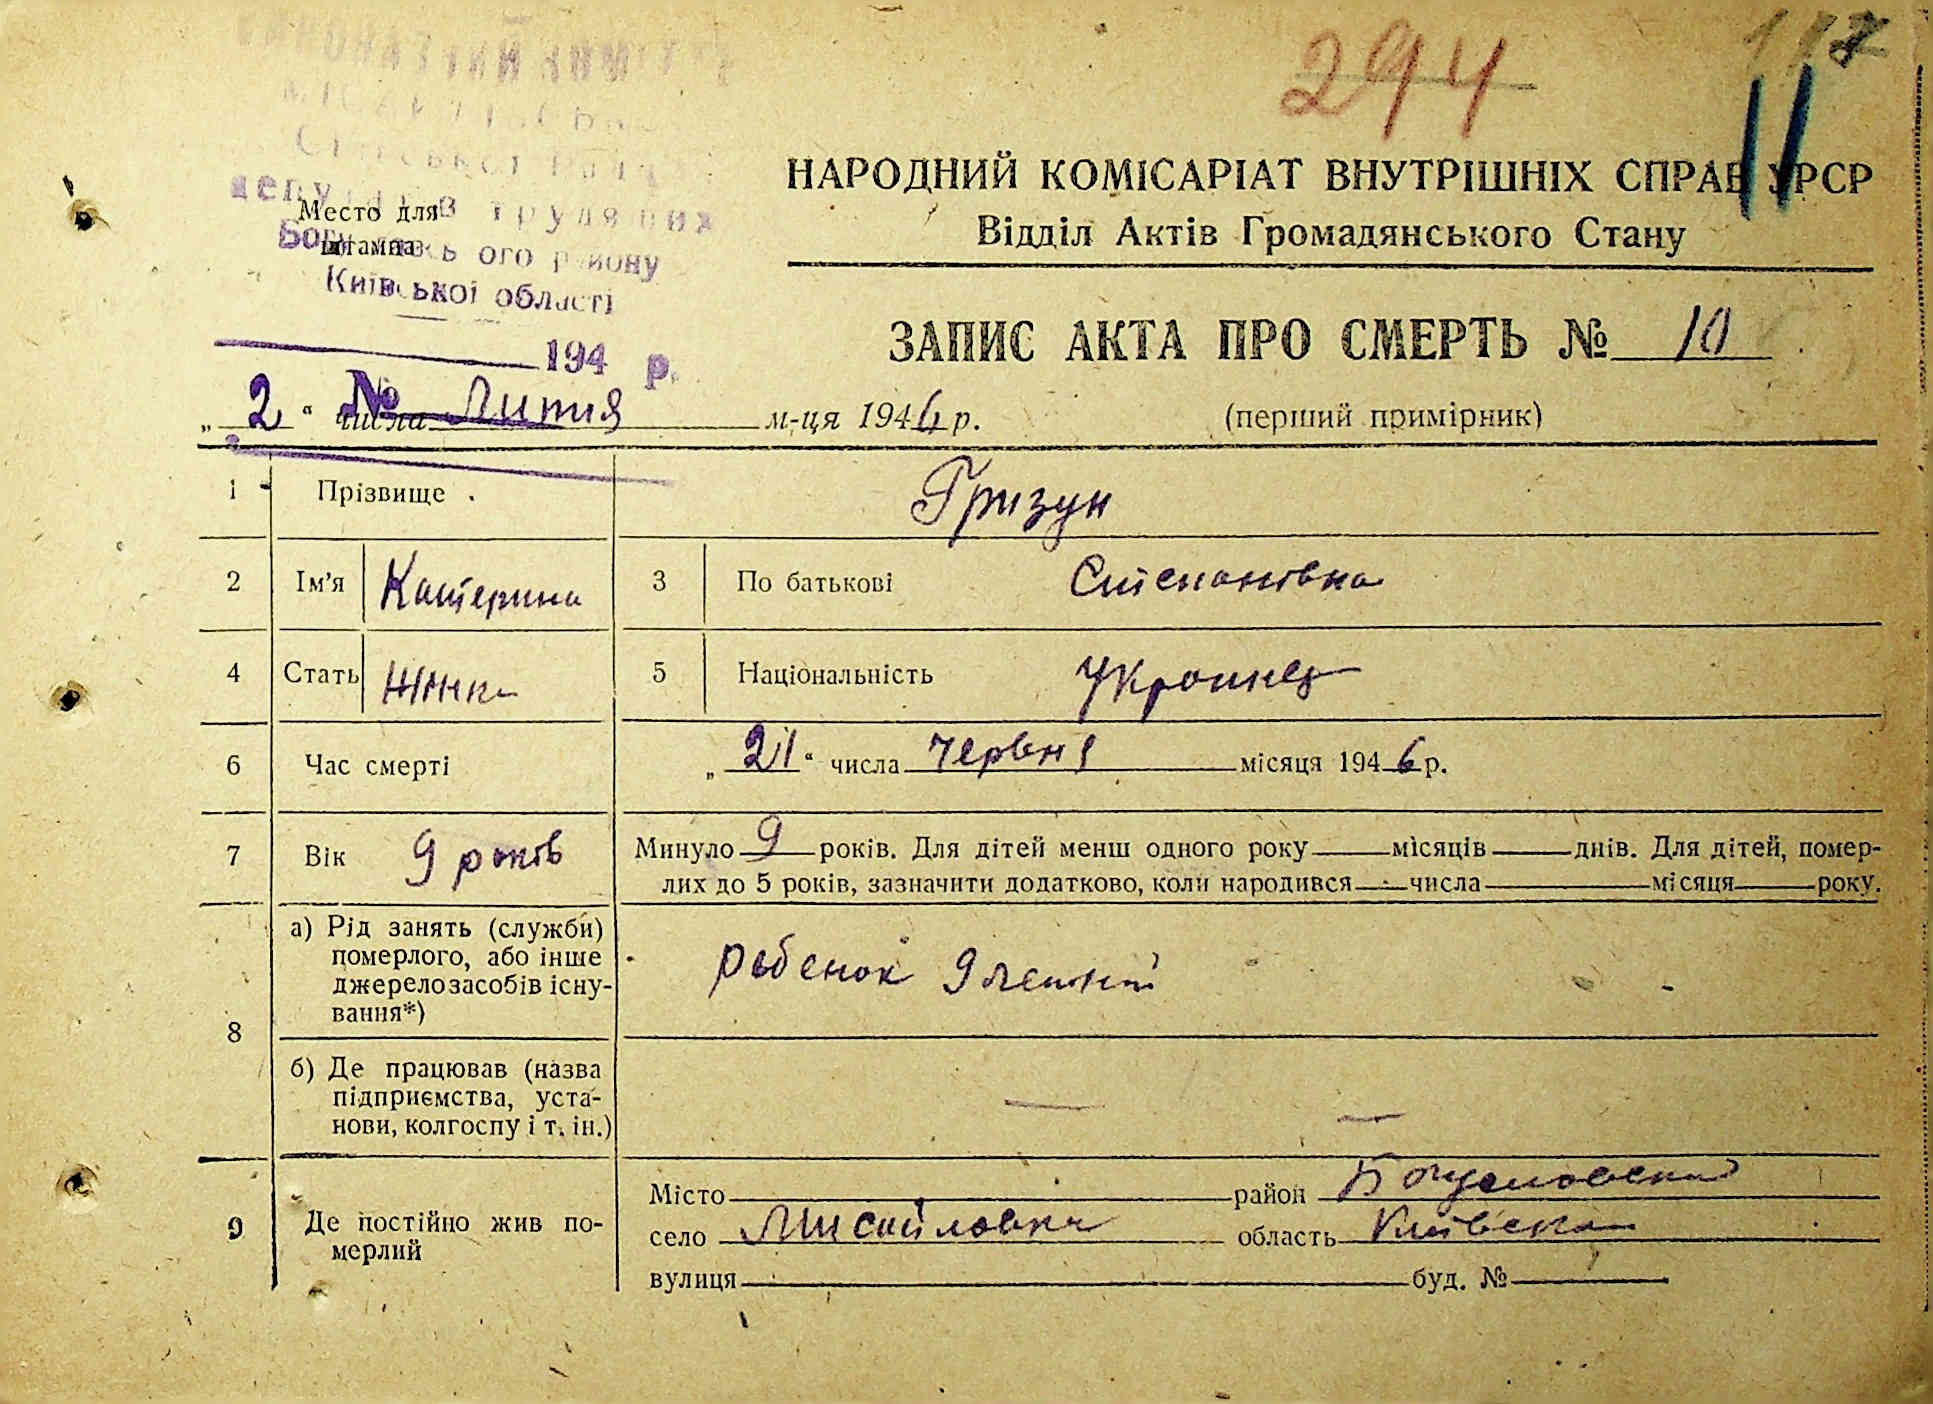 294
117
11
НАРОДНИЙ КОМІСАРІАТ ВНУТРІШНІХ СПРАВ УРСР
Відділ Актів Громадянського Стану
Место для
штампа
трудящих
Богуславського району
Київської області
194 р.
№
ЗАПИС АКТА ПРО СМЕРТЬ № 10
„ 2 “ числа Липня м-ця 1946 р.
(перший примірник)
1 Прізвище Гризун
2 Ім’я Катерина 3 По батькові Степановна
4 Стать Жінка 5 Національність Украинец
6 Час смерті „ 21 “ числа червня місяця 1946 р.
7 Вік 9 років Минуло 9 років. Для дітей менш одного року місяців днів. Для дітей, помер-
лих до 5 років, зазначити додатково, коли народився числа місяця року.
8 а) Рід занять (служби)
померлого, або інше
джерело засобів існу-
вання*)
рьбенок 9 летний
б) Де працював (назва
підприємства, уста-
нови, колгоспу і т. ін.)
9 Де постійно жив по-
мерлий
Місто район Богуславский
село Мисайловка область Київская
вулиця буд. №